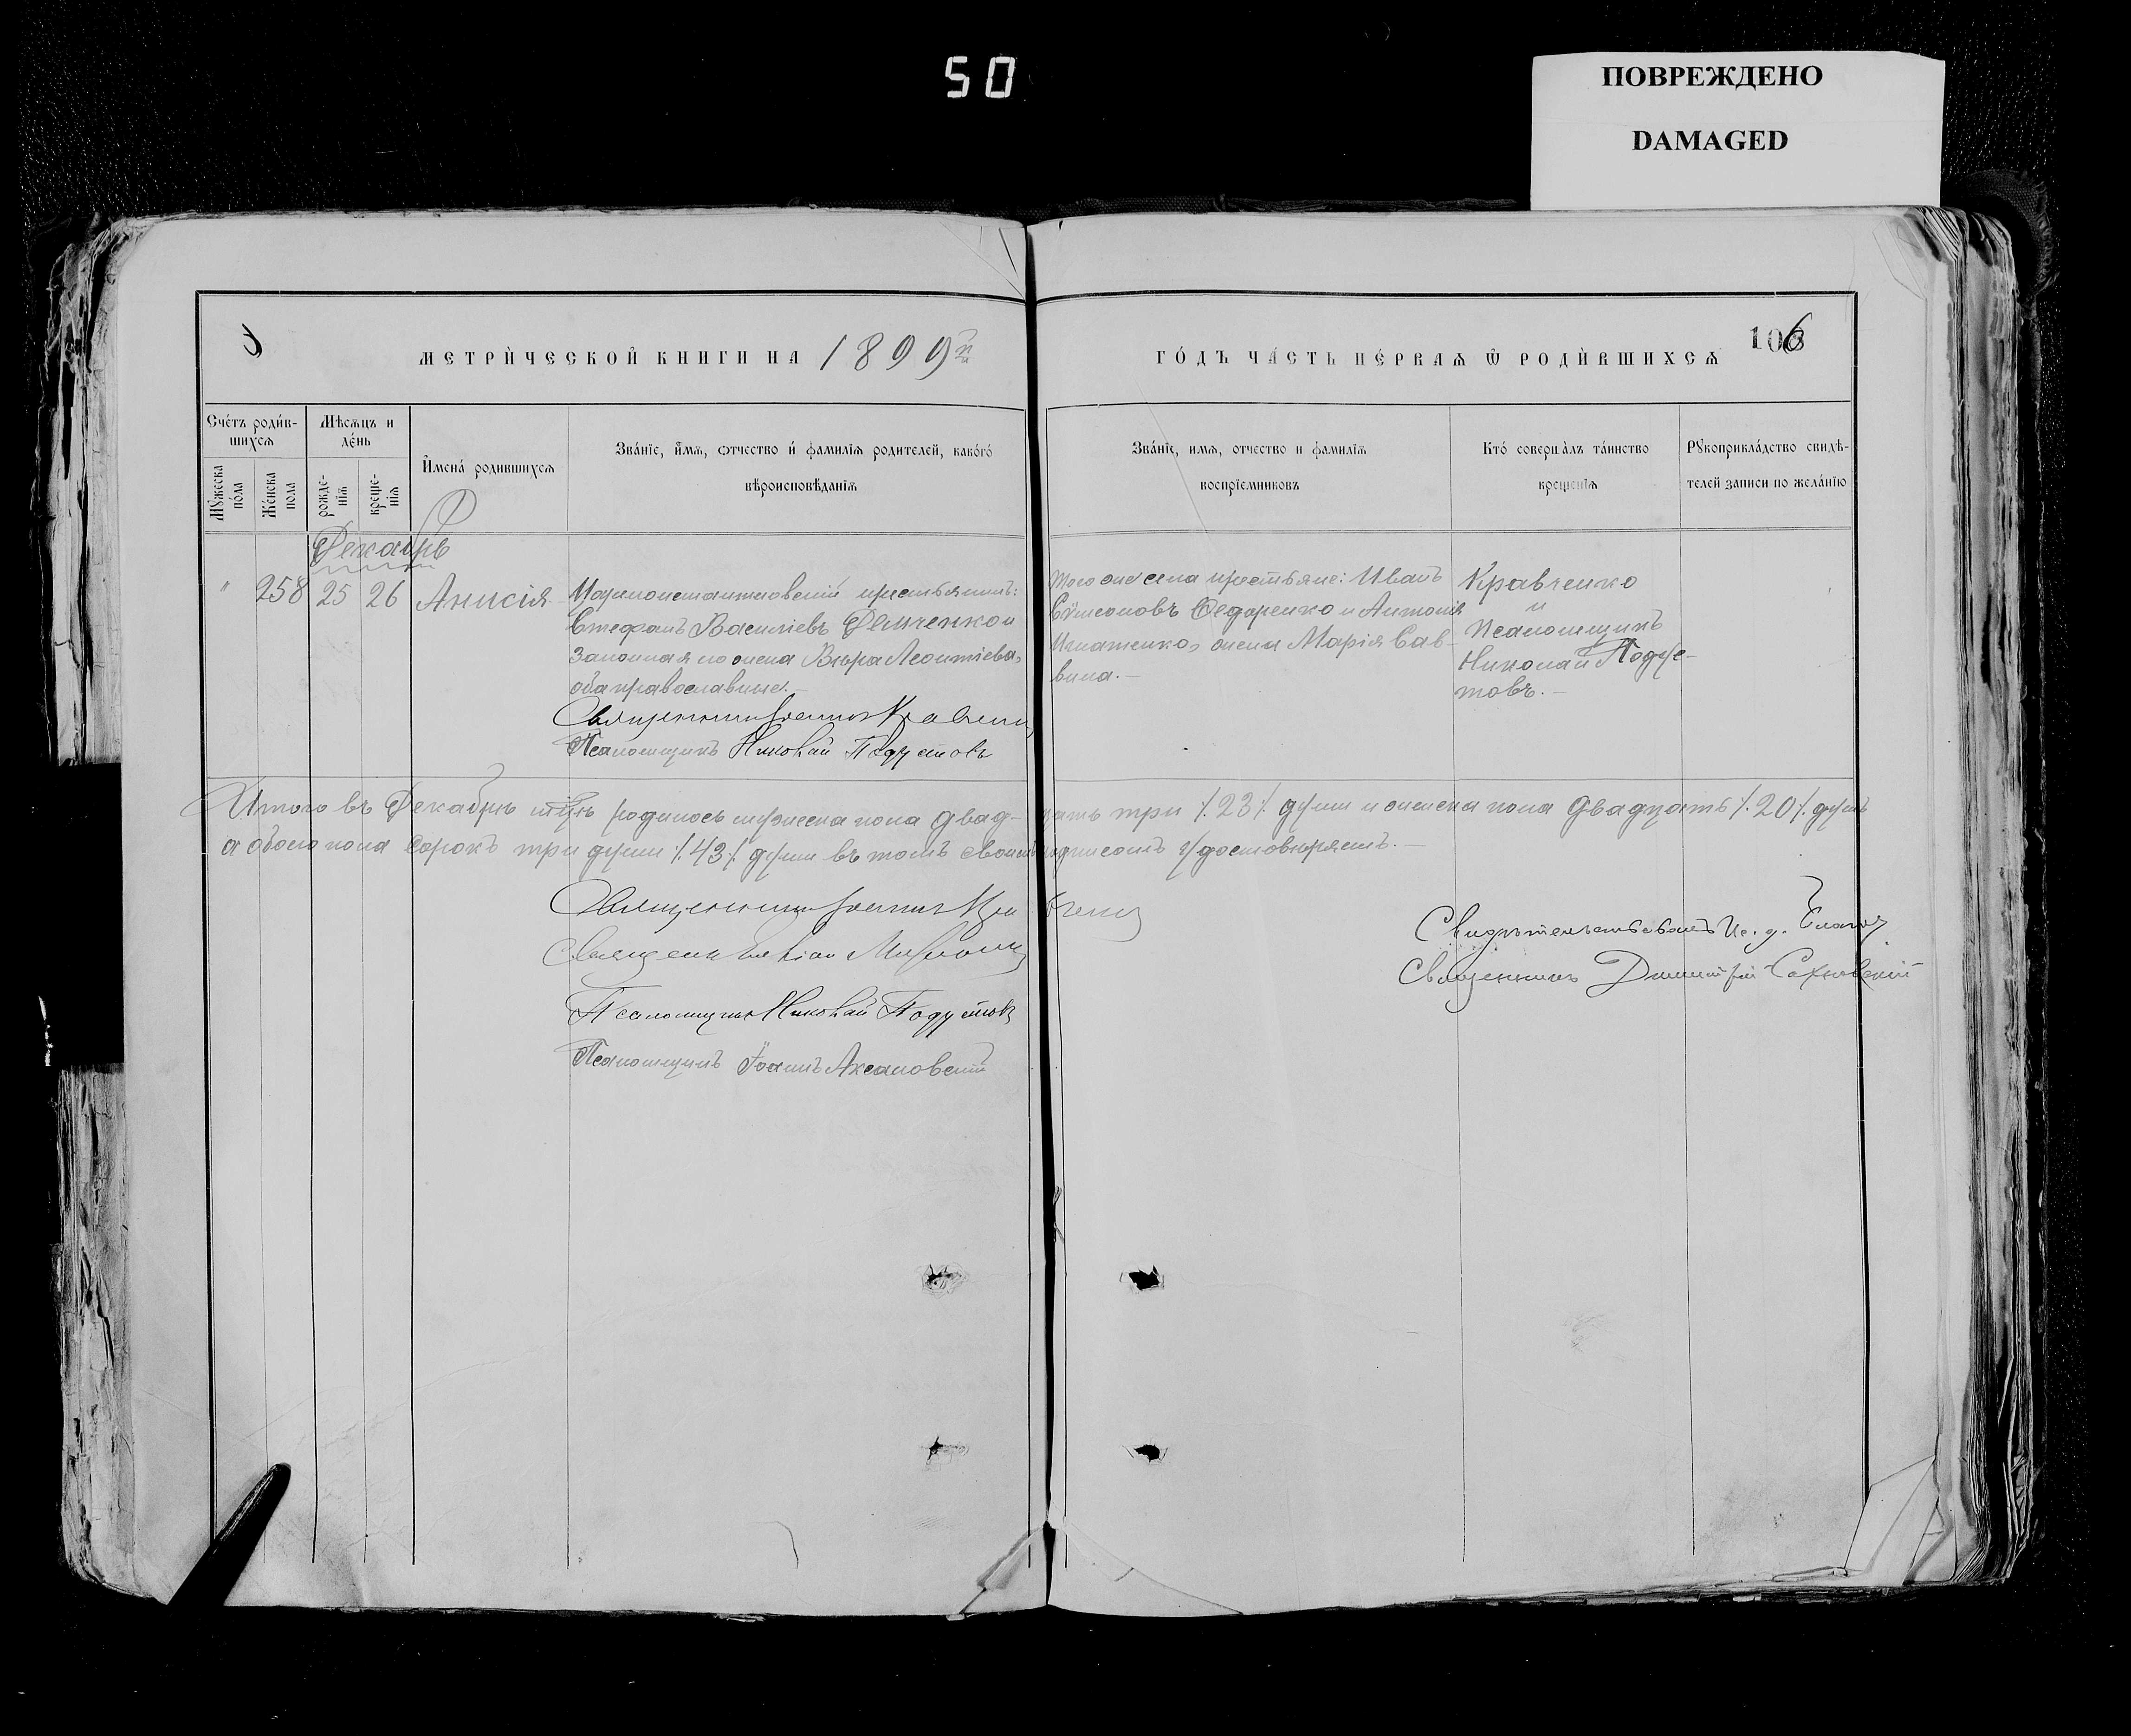 50
ПОВРЕЖДЕНО
DAMAGED
МЕТРИ́ЧЕСКОЙ КНИГИ НА 1899й
ГО́ДЪ ЧА́СТЬ ПЕ́РВАѦ Ѡ РОДИ́ВШИХСѦ
106
Сче́тъ роди́в-
шихсѧ
Мѣсѧцъ и
де́нь
Мꙋ́жеска
по́ла
Же́нска
пола
рожде-
нїѧ
креще-
нїѧ
И҆мена́ родившихсѧ
Зва́нїе, и҆́мѧ, ѻтчество и҆ фамилїѧ родителей, како́гѡ
вѣроисповѣданїѧ
Зва́нїе, имѧ, отчество и фамилїѧ
воспрїемниковъ
Кто́ соверша́лъ та́инство
крещенїѧ
Рꙋкоприкла́дство свидѣ-
телей записи по жела́нїю
Декабрь
" 258 25 26 Анисія
Маріоконстантиновскій крестьянинъ:
Стефанъ Василіевъ Демченко и
законная его жена Вѣра Леонтіева,
оба православные.
Священникъ Іоаннъ Кравченко
Псаломщикъ Николай Подустовъ
того же села крестьяне: Иванъ
Федоренко и Антонія
Игнатенко, жена Марія Сав-
вина.
Кравченко
и
Псаломщикъ
Николай Поду-
стовъ.
Итого въ Декабрѣ мцѣ родилось мужеска пола двад-цать три /.23./ души и женска пола двадцать /.20./ душъ
а обоего пола сорокъ три души /.43./ души въ томъ своимъ подписомъ удостовѣряемъ.
Священникъ Іоаннъ Кравченко
Священникъ
Псаломщикъ Николай Подустовъ
Псаломщикъ Іоаннъ Аксановскій
Свидѣтельствовалъ Ис. д. Благоч.
Священникъ Димитрій Сахновскій